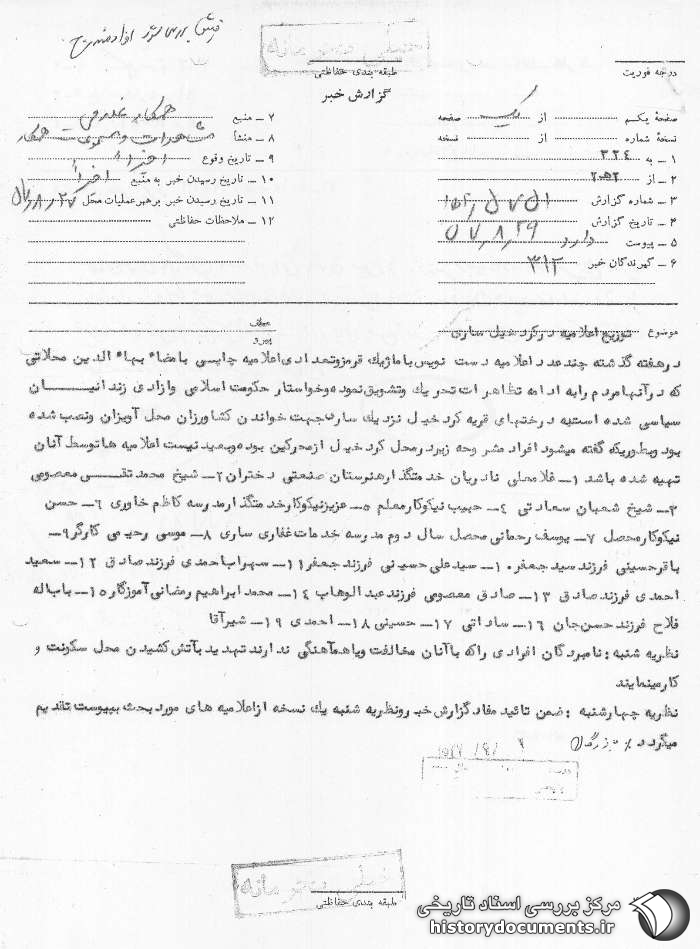 خیلی محرمانه
طبقه بندی حفاظتی
درجه فوریت
گزارش خبر
صفحهٔ یکم از یک صفحه
نسخهٔ شماره از نسخه
۱ ـ به ۳۲۴
۲ ـ از ۲۰ھ۲
۳ ـ شماره گزارش
۴ ـ تاریخ گزارش ۵۷٫۸٫۲۹
۵ ـ پیوست دارد
۶ ـ گیرندگان خبر ۳۱۲
۷ ـ منبع همکار
۸ ـ منشأ مشاهدات و همکار
۹ ـ تاریخ وقوع اخیراً
۱۰ ـ تاریخ رسیدن خبر به منبع اخیراً
۱۱ ـ تاریخ رسیدن خبر برهبر عملیات محل ۵۷٫۸٫۲۷
۱۲ ـ ملاحظات حفاظتی
موضوع توزیع اعلامیه در کرد خیل ساری
عطف
پیرو
در هفته گذشته چند عدد اعلامیه دست نویس با ماژیک قرمز و تعدادی اعلامیه چاپی بامضاء بهاء الدین محلاتی
که در آنها مردم را به ادامه تظاهرات تحریک و تشویق نموده و خواستار حکومت اسلامی و ازادی زندانیان
سیاسی شده است به درختهای قریه کرد خیل نزدیک ساری جهت خواندن کشاورزان محل آویزان و نصب شده
بود و بطوریکه گفته میشود افراد مشروحه زیر در محل کرد خیل از محرکین بوده و بعید نیست اعلامیه ها توسط آنان
تهیه شده باشد ۱ـ غلامعلی نادریان خدمتگذار هنرستان صنعتی دختران ۲ـ شیخ محمد تقی معصومی
۳ـ شیخ شعبان سعادتی ۴ـ حبیب نیکوکار معلم ۵ـ عزیز نیکوکار خدمتگذار مدرسه کاظم خاوری ۶ـ حسن
نیکوکار محصل ۷ـ یوسف رحمانی محصل سال دوم مدرسه خدمات غفاری ساری ۸ـ موسی رحیمی کارگر ۹ـ
باقر حسینی فرزند سید جعفر ۱۰ـ سید علی حسینی فرزند جعفر ۱۱ـ سهراب احمدی فرزند صادق ۱۲ـ سعید
احمدی فرزند صادق ۱۳ـ صادق معصومی فرزند عبدالوهاب ۱۴ـ محمد ابراهیم رمضانی آموزگار ۱۵ـ باب اله
فلاح فرزند حسن جان ۱۶ـ ساداتی ۱۷ـ حسینی ۱۸ـ احمدی ۱۹ـ شیرآقا
نظریه شنبه : نامبردگان افرادی را که با آنان مخالفت و یا هماهنگی ندارند تهدید بآتش کشیدن محل سکونت و
کار مینمایند
نظریه چهارشنبه : ضمن تائید مفاد گزارش خبر و نظریه شنبه یک نسخه از اعلامیه های مورد بحث بپیوست تقدیم
میگردد
خیلی محرمانه
طبقه بندی حفاظتی
مرکز بررسی اسناد تاریخی
historydocuments.ir